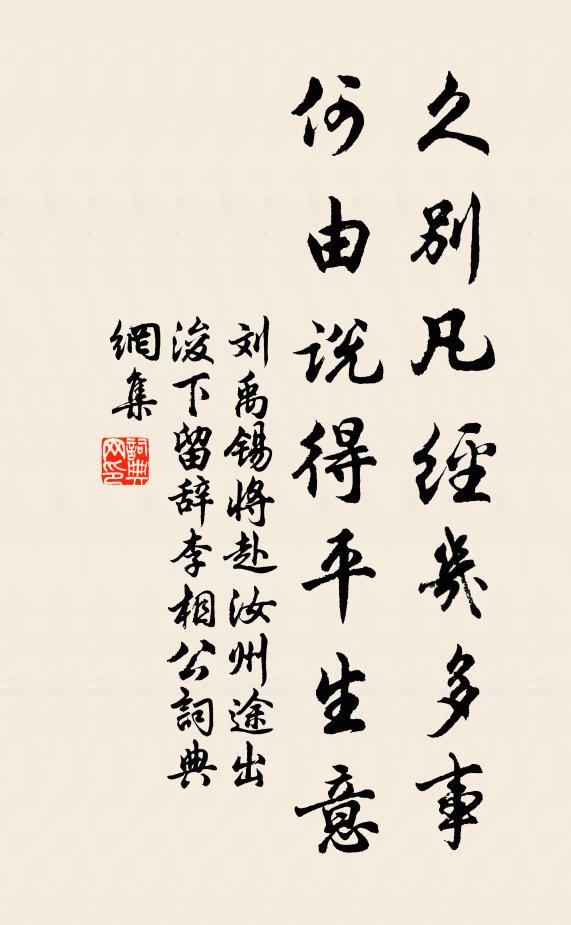 久別凡經幾多事
何由說得平生意
刘禹锡将赴汝州途出
浚下留辞李相公詞典
網集
詞典
网印